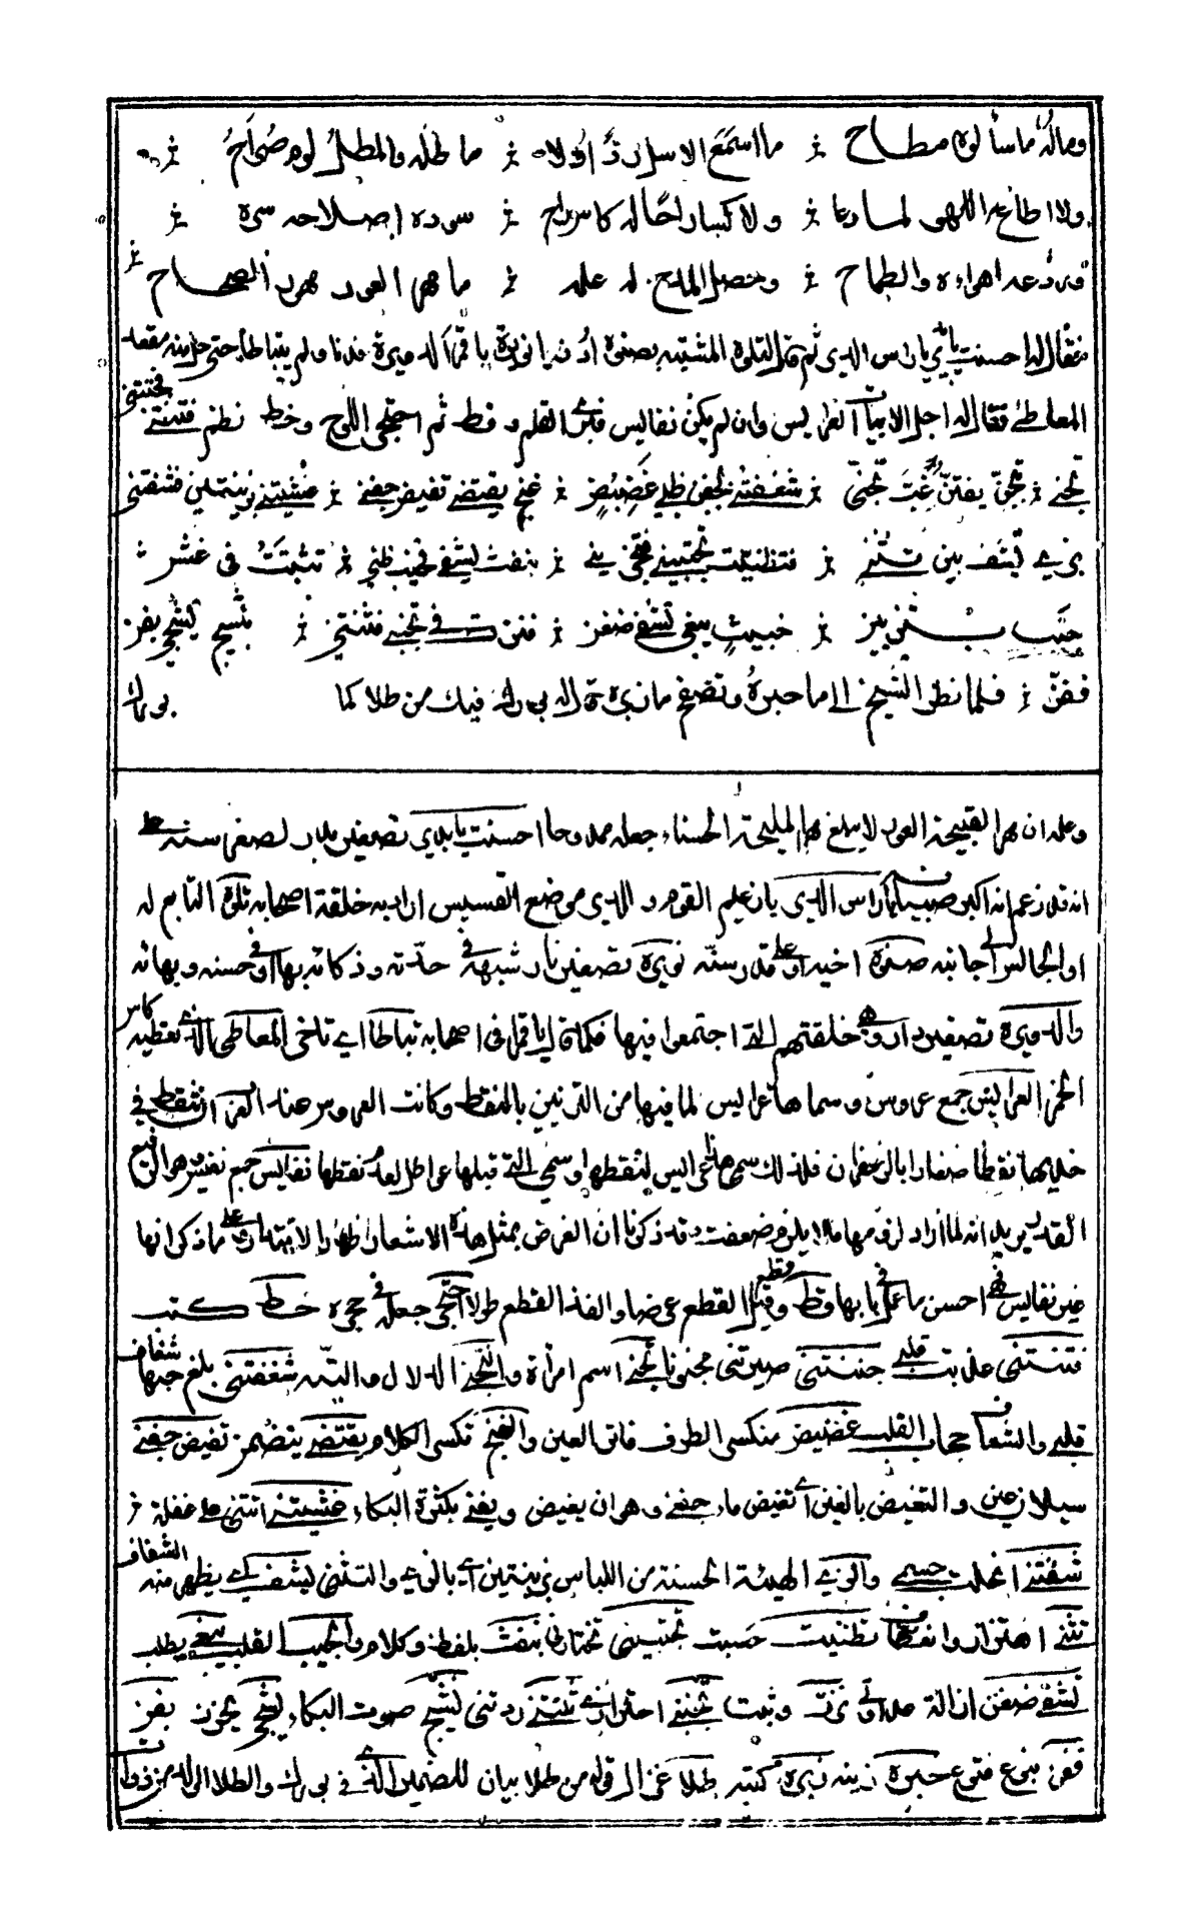 وماله ما سألوه مطاح ما اسمع الاسل ردا ولا ما طله والمطل لوم صراح
ولا اطاعه اللهو لما دعا ولا كسا راحا له كاس راح سوده اصلاحه سره
وردعه اهواءه والطماح وحصل المدح له علمه ما مهر العور مهور الصحاح
فقال له احسنت يا بدير يا راس الدير ثم قال لتلوه المشتبه بصنوه ادن يا نويرة يا قمر الدويرة فدنا ولم يتباطأ حتى حل منه مقعد
المعاطي فقال له اجل الابيات العرايس وان لم يكن نفايس فبرى القلم وقط ثم احتجر اللوح وخط نظم فتنتني فجننتني
تجني بتجن يفتن غب تجني شغفتني بجفن ظبي غضيض غنج يقتضي تغيض جفني غشيتني بزينتين فشفتني
بزي يشف بين تثني فتظنيت تجتبيني فتجزيني بنفث يشفي فخيب ظني ثبتت في غش
جيب بتزيين خبيث يبغي تشفي ضغن فنزت في تجنيه فثنتني بنشيج يشجي بفن
ففن فلما نظر الشيخ الى ما حبره وتصفح ما زبره قال له بورك فيك من طلا كما بورك
وعلم ان مهر القبيحة العور لا يبلغ مهر المليحة الحسناء جعله ممدوحا احسنت يا بدير تصغير بدر لصغر سنه
انه قد زعم انه اكبر صبيته يا راس الدير يا زعيم القوم والدير موضع القسيس اراد به خلقة اصحابه تلوه التابع له
او الجالس الى جانبه صنوه اخيه او على قدر سنه نويرة تصغير نار شبهه في حدته وذكائه بها او في حسنه وبهائه
والدويرة تصغير دار وهي خلقتهم التي اجتمعوا فيها فكانه اي يا قمرا في اصحابه تباطأ اي تاخر المعاطي الذي تعطيه كاس
الخمر العرايس جمع عروس وسماها عرايس لما فيها من التزيين بالنقط وكانت العروس عند العرب تنقط في
خديها نقطا صغارا بالزعفران فلذلك سمى هذه عرايس لنقطها وسمى التي قبلها عواطل لعدم نقطها نفايس جمع نفيس وهو الرفيع
القدر يريد انه لما اراد لزومها ما لا يلزم ضعفت وقد ذكرنا ان الغرض بمثل هذه الاشعار اظهار الاقتدار على ما ذكر انها
غير نفايس فهي احسن ما عمل في بابها وقط وقيل القط القطع عرضا والقد القطع طولا احتجر جعله في حجره خط كتب
فتنتني عذبت قلبي جننتني صيرتني مجنونا تجني اسم امرأة والتجني الدلال والتيه شغفتني بلغ حبها شغاف
قلبي والشغاف حجاب القلب غضيض منكسر الطرف فاتر العين والغنج تكسر الكلام يقتضي يتضمن تغيض جفني
سيلان عين والتغيض بالغين اي تغيض ماء جفني وهو ان يغيض ويفنى بكثرة البكاء غشيتني اتتني على غفلة
شفتني انحلت جسمي والزي الهيئة الحسنة من اللباس بزينتين اي بالزي والتثني يشف اي يظهر منه الشفاف
تثني اهتزاز وانعطاف تظنيت حسبت تجتبيني تختارني بنفث بلفظ وكلام والجيب القلب يبغي يطلب
تشفي ضغن ازالة عداوة نزت وثبت تجنيه احقرازي ثنتني ردتني نشيج صوت البكاء يشجي يحزن بفن
ففن بنوع فنوع حبره زينه زبره كتبه طلا غزال قوله من طلا بيان للضمير الذي في بورك والطلا الولد من ذوات